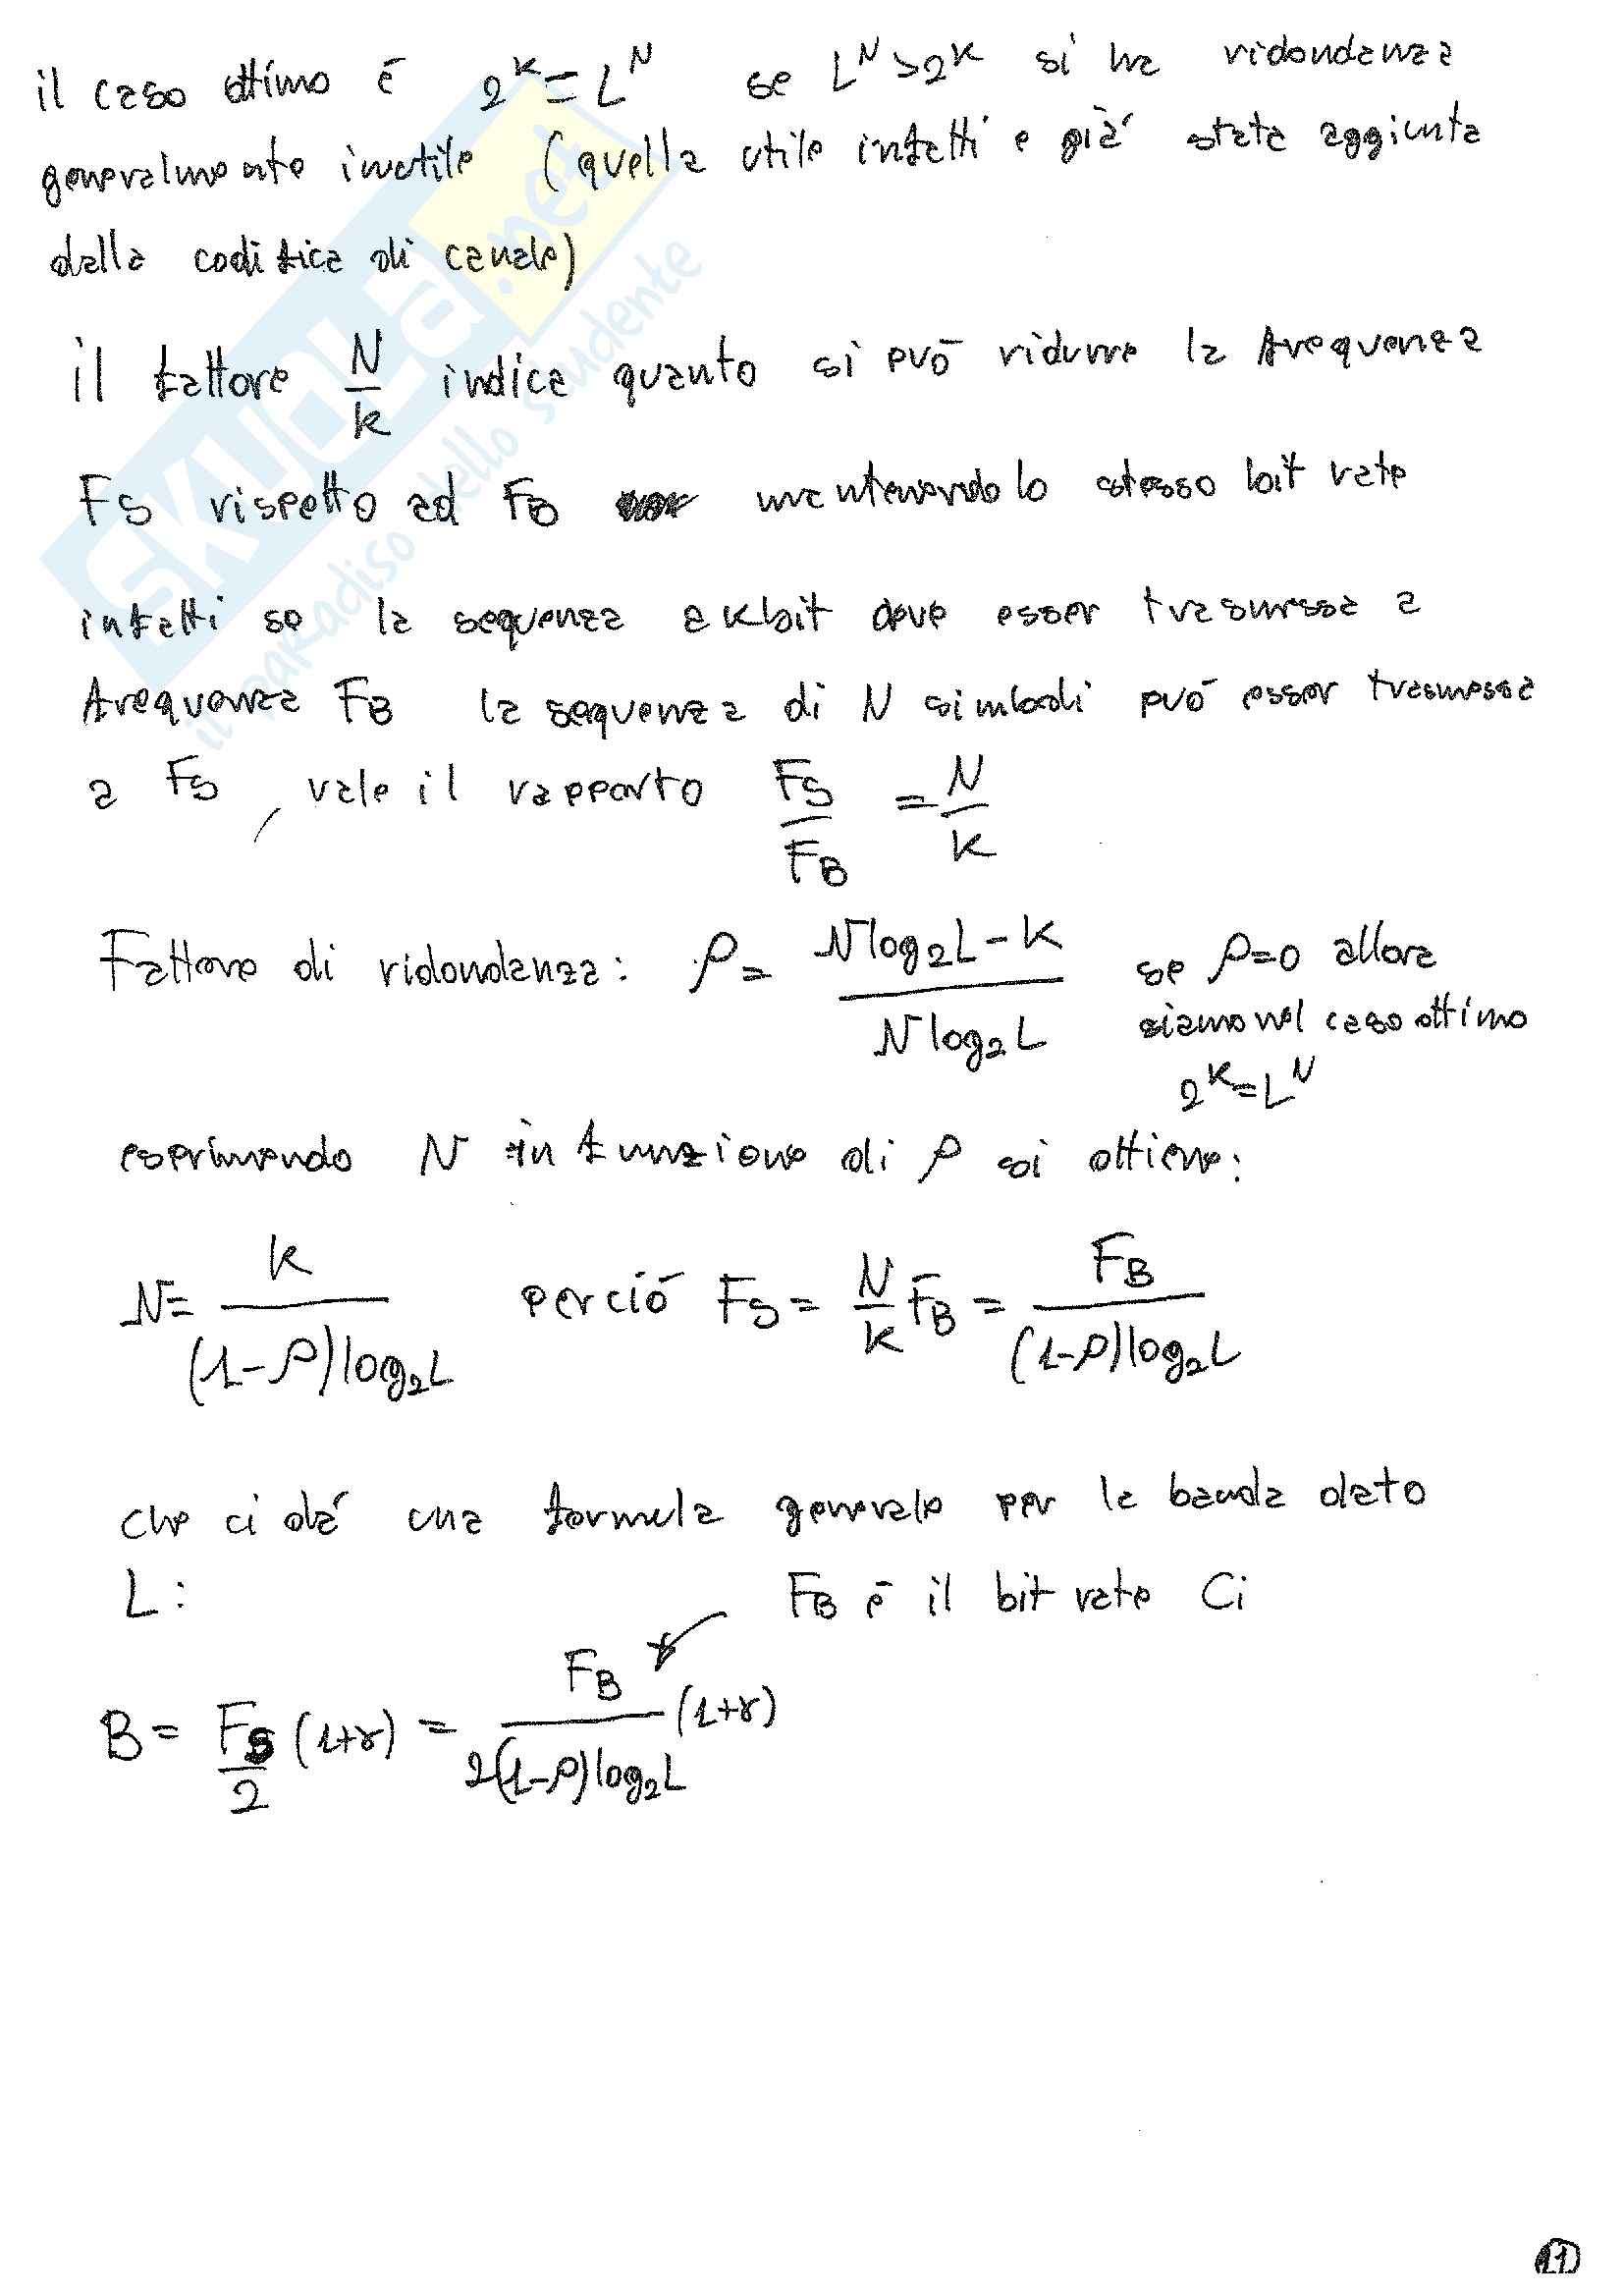 il caso ottimo é 2^K = L^N se L^N > 2^K si ha ridondanza
generalmente inutile (quella utile infatti e già stata aggiunta
dalla codifica di canale)
il fattore N/K indica quanto si può ridurre la frequenza
FS rispetto ad FB mantenendo lo stesso bit rate
infatti se la sequenza a K bit deve esser trasmessa a
frequenza FB la sequenza di N simboli può esser trasmessa
a FS, vale il rapporto FS/FB = N/K
Fattore di ridondanza: ρ = (N log₂L - K)/(N log₂L) se ρ=0 allora
siamo nel caso ottimo
2^K = L^N
esprimendo N in funzione di ρ si ottiene:
N = K/((1-ρ) log₂L) perció FS = N/K FB = FB/((1-ρ) log₂L)
che ci dá una formula generale per la banda dato
L: FB é il bit rate Ci
B = FS/2 (1+γ) = FB/(2(1-ρ) log₂L) (1+γ)
11
SKUOLA.net
il paradiso dello studente